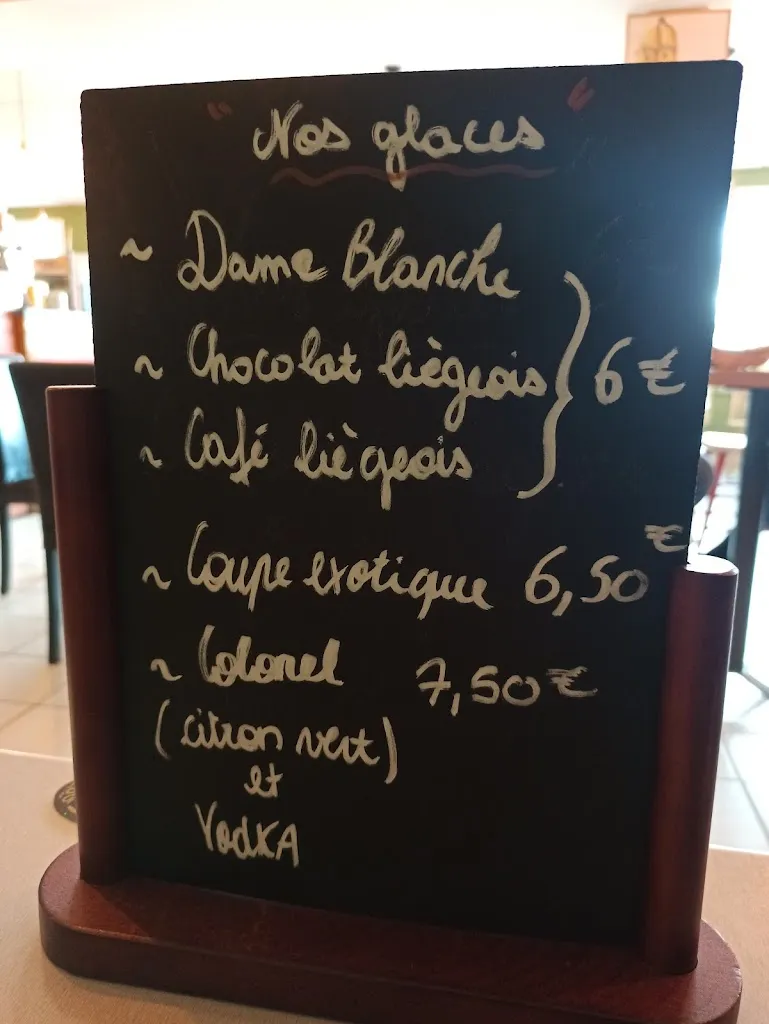 " Nos glaces "
~ Dame Blanche
~ Chocolat liègeois } 6 €
~ Café liègeois
~ Coupe exotique 6,50 €
~ Colonel 7,50 €
(citron vert)
et
VodKA